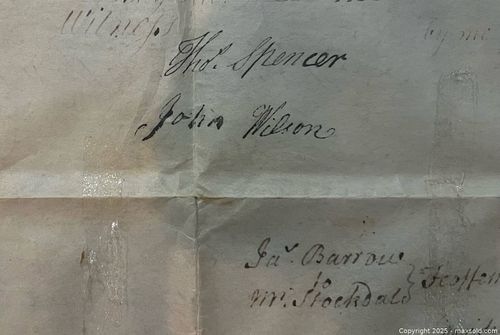 Witness
by me
Thos. Spencer
John Wilson
Jas. Barrow
to
Mr. Stockdale
Copyright 2025 - maxsold.com